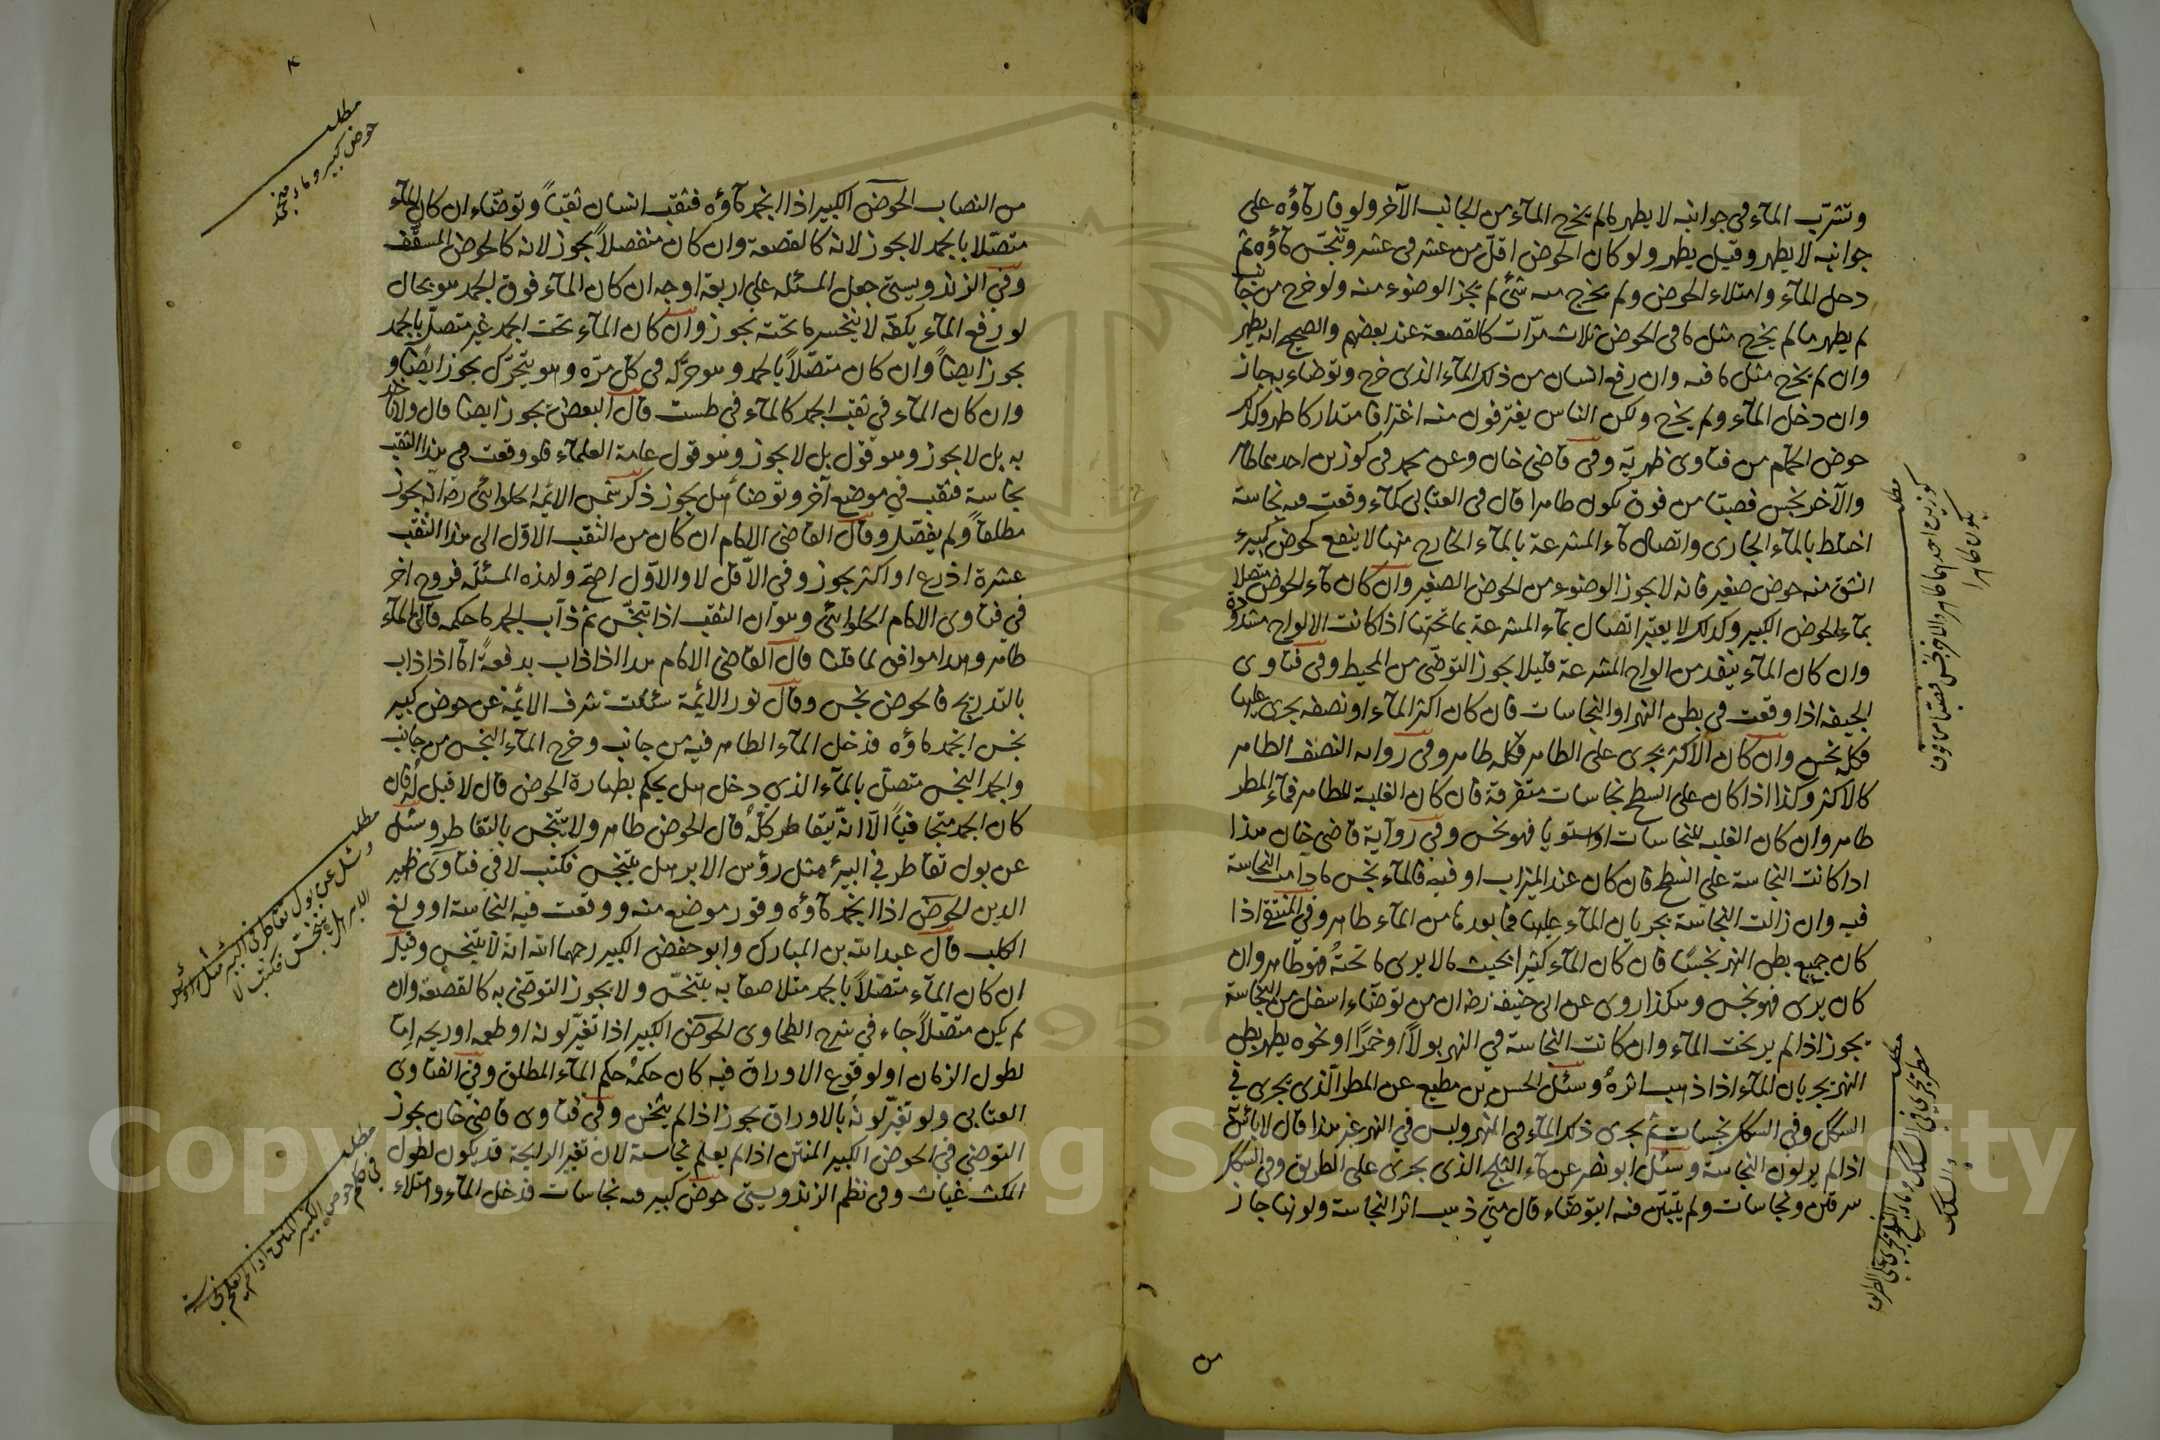 وتشرب المآء في جوانبه لا يطهر مالم يخرج المآء من الجانب الآخر ولو فار مآؤه على
جوانبه لا يطهر وقيل يطهر ولو كان الحوض اقل من عشر في عشر وتنجس مآؤه ثم
دخل المآء وامتلاء الحوض ولم يخرج منه شئ لم يجز الوضوء منه ولو خرج من جانب
لم يطهر مالم يخرج مثل ما في الحوض ثلاث مرّات كالقصعة عند بعضهم والصحيح انه يطهر
وان لم يخرج مثل ما فيه وان رفع انسان من ذلك المآء الذي خرج وتوضاء به جاز
وان دخل المآء ولم يخرج ولكن الناس يغترفون منه اغترافا متداركا طهر وكذلك
حوض الحمام من فتاوى ظهريّة وفي قاضي خان وعن محمد في كوزين احدهما طاهر
والآخر نجس فصبتا من فوق يكون طاهرا قال في العتابي كمآء وقعت فيه نجاسة
اختلط بالمآء الجارى واتصال مآء المشرعة بالمآء الخارج منها لا ينفع كحوض كبير
انشق منه حوض صغير فانه لا يجوز الوضوء من الحوض الصغير وان كان مآء الحوض متصلا
بمآء الحوض الكبير وكذلك لا يعتبر اتصال بمآء المشرعة بما تحتها اذا كانت الالواح مشدودة
وان كان المآء ينفد من الواح المشرعة قليلا يجوز التوضّئ من المحيط وفي فتاوى
الجيفه اذا وقعت في بطن النهر او النجاسات فان كان اكثر المآء او نصفه يجرى عليها
فكله نجس وان كان الاكثر يجرى على الطاهر فكله طاهر وفي روايه النصف الطاهر
كالاكثر وكذا اذا كان على السطح نجاسات متفرقة فان كان الغلبة للطاهر فمآء المطر
طاهر وان كان الغلبه للنجاسات او استويا فهو نجس وفي رواية قاضي خان هذا
اذا كانت النجاسة على السطح فان كان عند الميزاب او فيه فالمآء نجس ما دامت النجاسة
فيه وان زالت النجاسة بجريان المآء عليها فما بعدها من المآء طاهر وفي المنتقى اذا
كان جميع بطن النهر نجسًا فان كان المآء كثيرا بحيث لا يرى ما تحتُه فهو طاهر وان
كان يرى فهو نجس وهكذا روى عن ابي حنيفة رضه ان من توضّاء اسفل من النجاسة
يجوز اذا لم ير تحت المآء وان كانت النجاسة في النهر بولاً او خمرًا او نحوه يطهر بطن
النهر بجريان المآء اذا ذهب اثرهُ وسئل الحسن بن مطيع عن المطر الّذي يجرى في
السكك وفي السكك نجسات ثم يجرى ذلك المآء في النهر وليس في النهر غير هذا قال لا بأس
اذا لم ير لون النجاسة وسئل ابو نصر عن مآء الثلج الذى يجرى على الطريق وفي السكك
سرقين ونجاسات ولم يتبيّن فيه ايتوضّاء قال متى ذهب اثر النجاسة ولونها جاز
مطلب
كوزين احدهما طاهر والآخر نجس فصبتا من فوق
يكون طاهرا
مطلب
مطر يجرى في السكك
والسكك
من
٤
من النصاب الحوض الكبير اذا انجمد مآؤه فنقب انسان ثقبًا وتوضّاء ان كان المآء
متصّلا بالجمد لا يجوز لانه كالقصعة وان كان منفصلاً يجوز لانه كالحوض المسقّف
وفي الزندويستى جعل المسئله على اربعة اوجه ان كان المآء فوق الجمد هو بحال
لو رفع المآء بكفّه لا ينحسر ما تحته يجوز وان كان المآء تحت الجمد غير متصلّ بالجمد
يجوز ايضاً وان كان متصّلاً بالجمد وهو حرّكه في كل مرّه وهو يتحرّك يجوز ايضًا و
وان كان المآء في ثقب الجمد كالمآء في طست قال البعض يجوز ايضا قال ولانأخذ
به بل لا يجوز وهو قول بل لا يجوز وهو قول عامة العلمآء فلو وقعت في هذا الثقب
نجاسة فنقب في موضع آخر وتوضأ هل يجوز ذكر شمس الائمه الحلوائي رضه انه يجوز
مطلقا ولم يفصّل وقال القاضي الامام ان كان من الثقب الاوّل الى هذا الثقب
عشرة اذرع او اكثر يجوز وفي الاّقل لا والاوّل اصح ولهذه المسئله فروع اخر
في فتاوى الامام الحلوائي وهو ان الثقب اذا تنجّس ثم ذاب الجمد ما حكمه قال المآء
طاهر وهذا موافق لما قلنا قال القاضي الامام هذا اذا ذاب بدفعةً امّا اذا ذاب
بالتدريج فالحوض نجس وقال نور الائمة سئلت شرف الائمة عن حوض كبير
نجس انجمد مآؤه فدخل المآء الطاهر فيه من جانب وخرج المآء النجس من جانب
والجمد النجس متصل بالمآء الذي دخل هل يحكم بطهارة الحوض قال لا قيل له فان
كان الجمد متجافيًا الّا انه يتقاطر كلّهُ قال الحوض طاهر ولا يتنجس بالتقاطر وسئل
عن بول تقاطر في البئر مثل رؤس الابر هل يتنجس فكتب لا في فتاوى ظهير
الدين الحوض اذا انجمد مآؤه وقور موضع منه ووقعت فيه النجاسة او ولغ
الكلب قال عبد الله بن المبارك وابو حفص الكبير رحمهما الله انه لا يتنجس وقيل
ان كان المآء متصّلاً بالجمد متلاصقا به يتنجّس ولا يجوز التوضّي به كالقصعة وان
لم يكن متصّلاً جاء في شرح الطحاوى الحوض الكبير اذا تغيّر لونه او طعمه او ريحه اما
لطول الزمان او لوقوع الاوراق فيه كان حكمهُ حكم المآء المطلق وفي الفتاوى
العتابى ولو تغيّر لونهُ بالاوراق يجوز اذا لم يثخن وفي فتاوى قاضي خان يجوز
التوضي في الحوض الكبير المنتن اذا لم يعلم نجاسة لان تغير الرايحة قد يكون لطول
المكث غياث وفي نظم الزندويستى حوض كبير فيه نجاسات فدخل المآء وامتلاء
مطلب
حوض كبير وماء منجمد
مطلب
وسئل عن بول تقاطر في البئر مثل راؤس
الابر هل يتنجس فكتب لا
مطلب
في حكم حوض الكبير المنتن اذا لم يعلم نجاسة
Copyright © King Saud University
1957